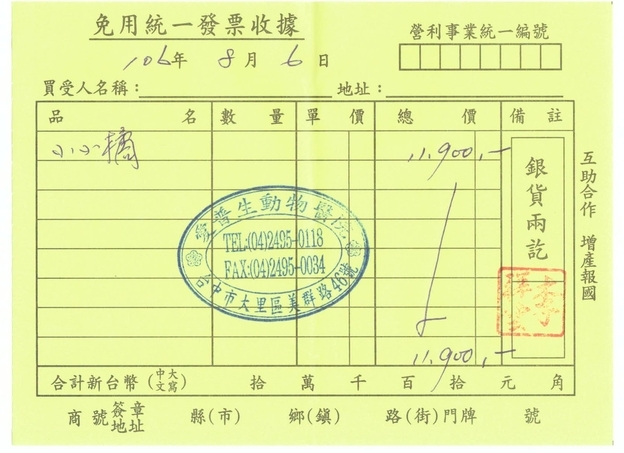 免用統一發票收據
營利事業統一編號
106年 8月 6日
買受人名稱： 地址：
品 名 數 量 單 價 總 價 備 註
小小橘 11,900,-
銀貨兩訖
互助合作 增產報國
愛普生動物醫院
TEL:(04)2495-0118
FAX:(04)2495-0034
台中市大里區美群路46號
11,900,-
合計新台幣（中文大寫） 拾 萬 千 百 拾 元 角
商號簽章地址 縣(市) 鄉(鎮) 路(街)門牌 號